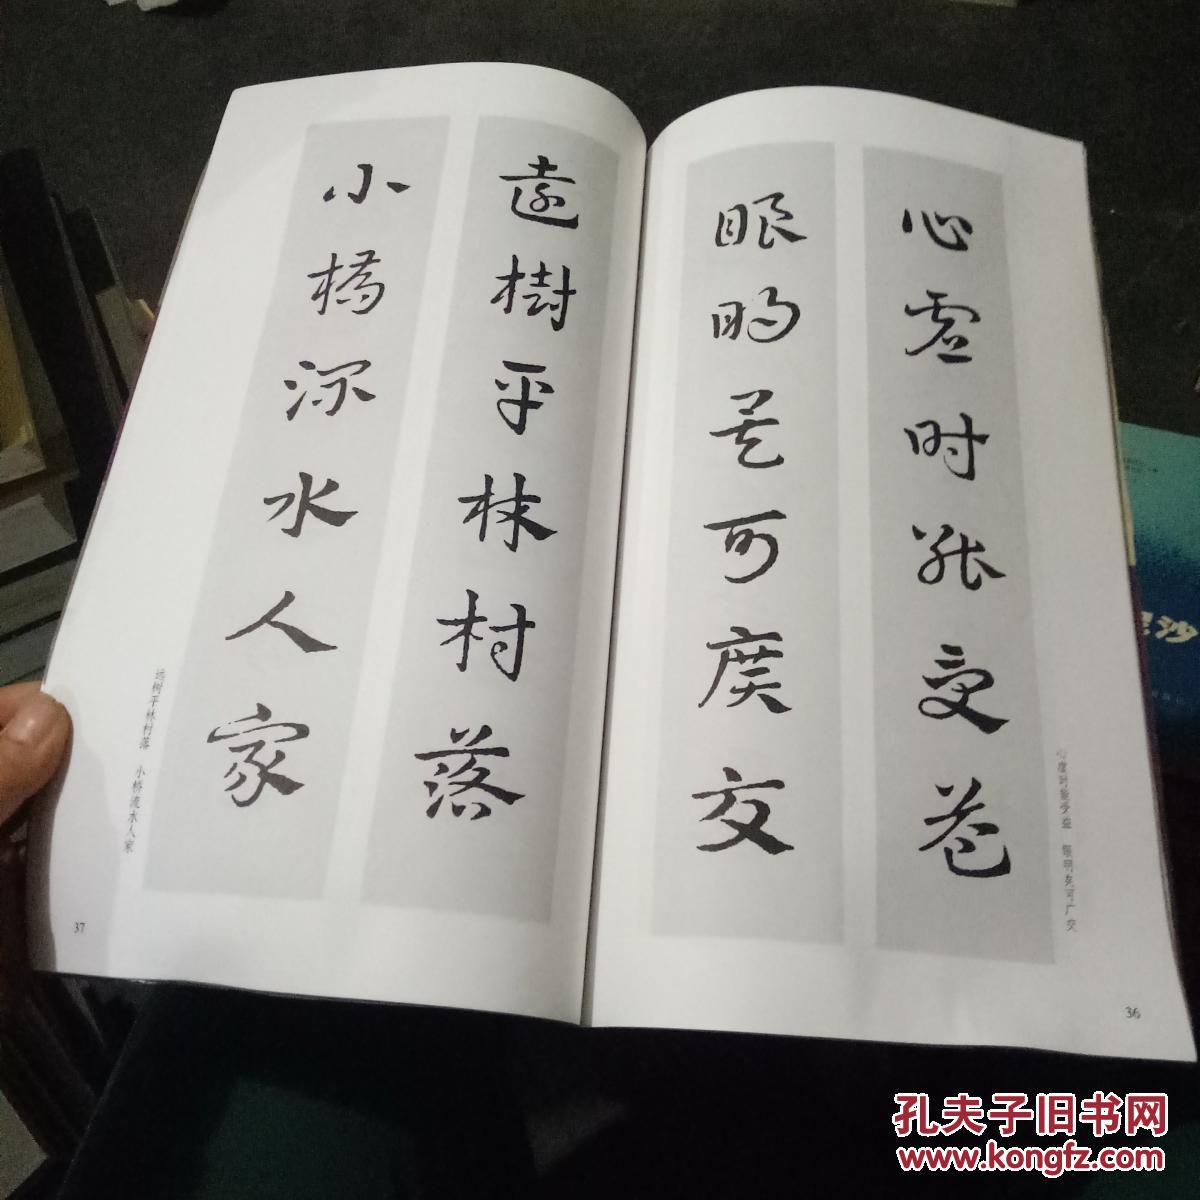 心虚时能受益
眼明可廣交
心虚时能受益 眼明可广交
36
遠樹平林村落
小橋流水人家
远树平林村落 小桥流水人家
37
沙
孔夫子旧书网
www.kongfz.com